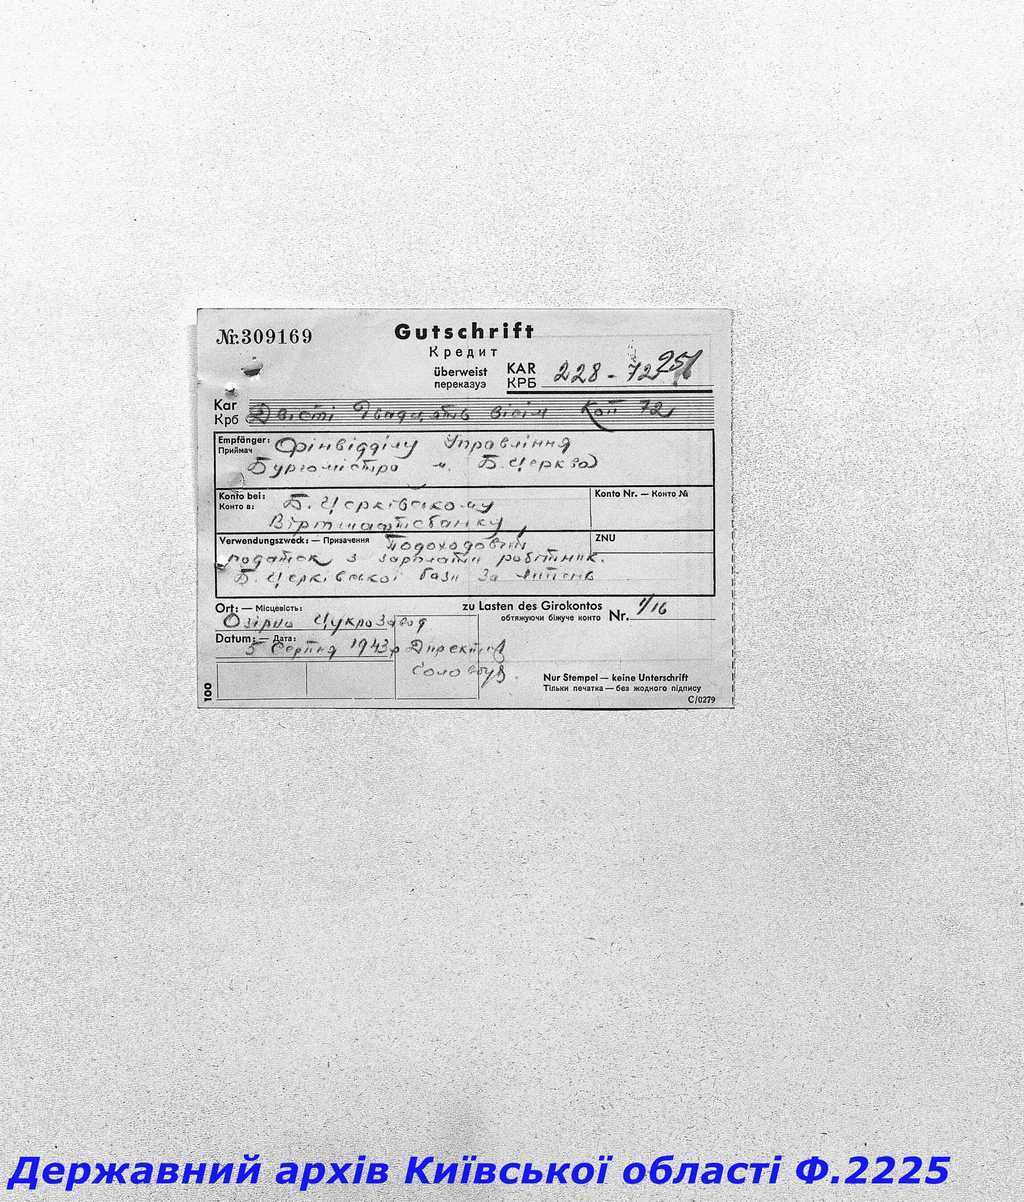 Nr.309169
Gutschrift
Кредит
überweist KAR
переказуэ КРБ 228-72
Kar
Крб Двісті Двадцять вісім Коп 72
Empfänger: Фінвідділу Управління
Приймач
Бургомістра м. Б. Церква
Konto bei: Б. Церківському Konto Nr. — Конто №
Конто в:
Віртшафтсбанку
Verwendungszweck: — Призачення Подоходовий ZNU
податок з зарплати робітник.
Б. Церківської бази за липень
Ort: — Місцевість: zu Lasten des Girokontos
Озірна Цукрозавод обтяжуючи біжуче конто Nr. 1/16
Datum: — Дата:
5 Серпня 1943р Директор
Nur Stempel — keine Unterschrift
Тільки печатка — без жодного підпису
100
C/0279
Державний архів Київської області Ф.2225